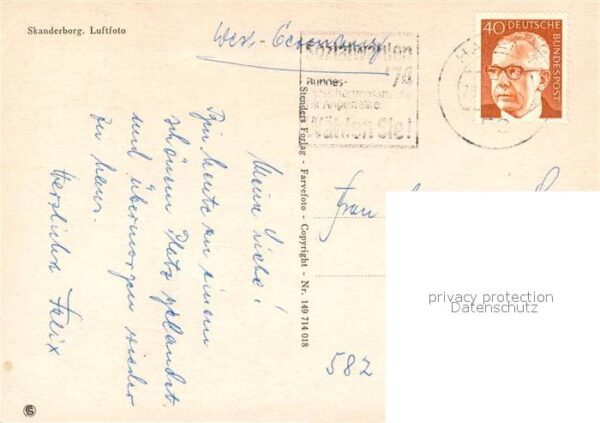 Skanderborg. Luftfoto
West-Germany
Sozialwahlen
74
Bundes-
für Angestellte
Wählen Sie!
40 DEUTSCHE
BUNDESPOST
Meine Liebe!
Bin heute an einem
schönem Platz gelandet.
und übermorgen wieder
zu haus.
Herzlichst Felix
Stenders Forlag - Farvefoto - Copyright - Nr. 149 714 018
Frau
582
privacy protection
Datenschutz